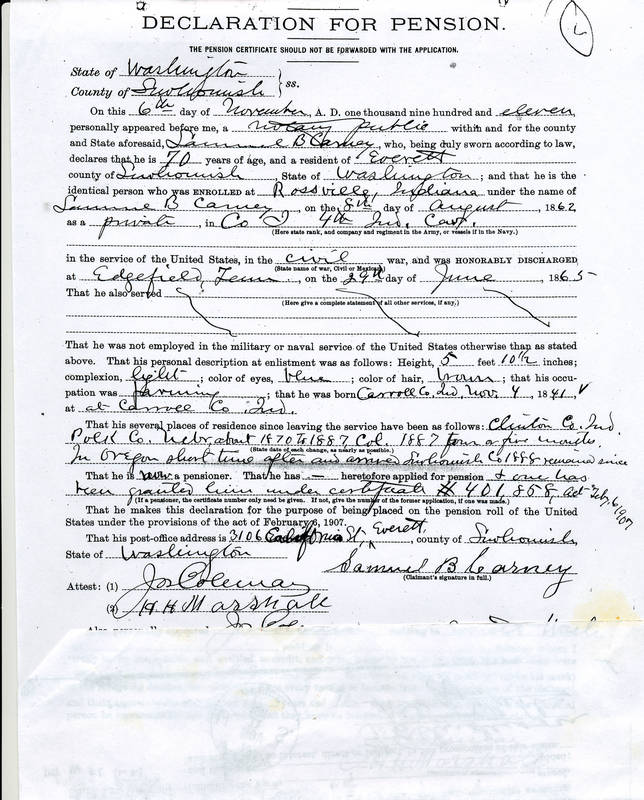 DECLARATION FOR PENSION.
THE PENSION CERTIFICATE SHOULD NOT BE FORWARDED WITH THE APPLICATION.
State of Washington
County of Snohomish } ss.
On this 6th day of November, A. D. one thousand nine hundred and eleven,
personally appeared before me, a notary public within and for the county
and State aforesaid, Samuel B Carney, who, being duly sworn according to law,
declares that he is 70 years of age, and a resident of Everett
county of Snohomish, State of Washington; and that he is the
identical person who was ENROLLED at Rossville, Indiana under the name of
Samuel B Carney, on the 8th day of August, 1862,
as a private, in Co I 4th Ind. Cav.
(Here state rank, and company and regiment in the Army, or vessels if in the Navy.)
in the service of the United States, in the civil war, and was HONORABLY DISCHARGED
(State name of war, Civil or Mexican)
at Edgefield, Tenn, on the 29th day of June, 1865
That he also served
(Here give a complete statement of all other services, if any.)
That he was not employed in the military or naval service of the United States otherwise than as stated
above. That his personal description at enlistment was as follows: Height, 5 feet 10½ inches;
complexion, light; color of eyes, blue; color of hair, brown; that his occu-
pation was farming; that he was born Carroll Co. Ind. Nov. 4, 1841,
at at Carroll Co Ind.
That his several places of residence since leaving the service have been as follows: Clinton Co. Ind
Polk Co. Nebr about 1870 to 1887 Col. 1887 four or five months.
(State date of each change, as nearly as possible.)
In Oregon short time after and Snohomish Co 1888 remained since
That he is a pensioner. That he has — heretofore applied for pension & one has
been granted him under certificate # 401,858, act Feb. 6, 1907
(If a pensioner, the certificate number only need be given. If not, give the number of the former application, if one was made.)
That he makes this declaration for the purpose of being placed on the pension roll of the United
States under the provisions of the act of February 6, 1907.
That his post-office address is 3106 California St, Everett, county of Snohomish,
State of Washington
Samuel B Carney
(Claimant's signature in full.)
Attest: (1) Jos Coleman
(2) H H Marshall